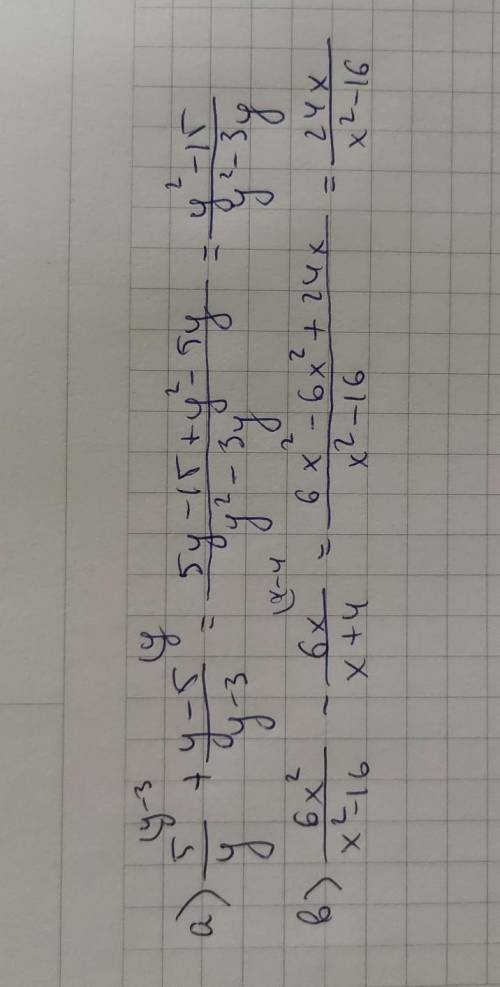 а) 5/y (y-3 + y-5/y-3 (y = 5y-15+y²-5y/y²-3y = y²-15/y²-3y
в) 6x²/x²-16 - 6x/x+4 (x-4 = 6x²-6x²+24x/x²-16 = 24x/x²-16